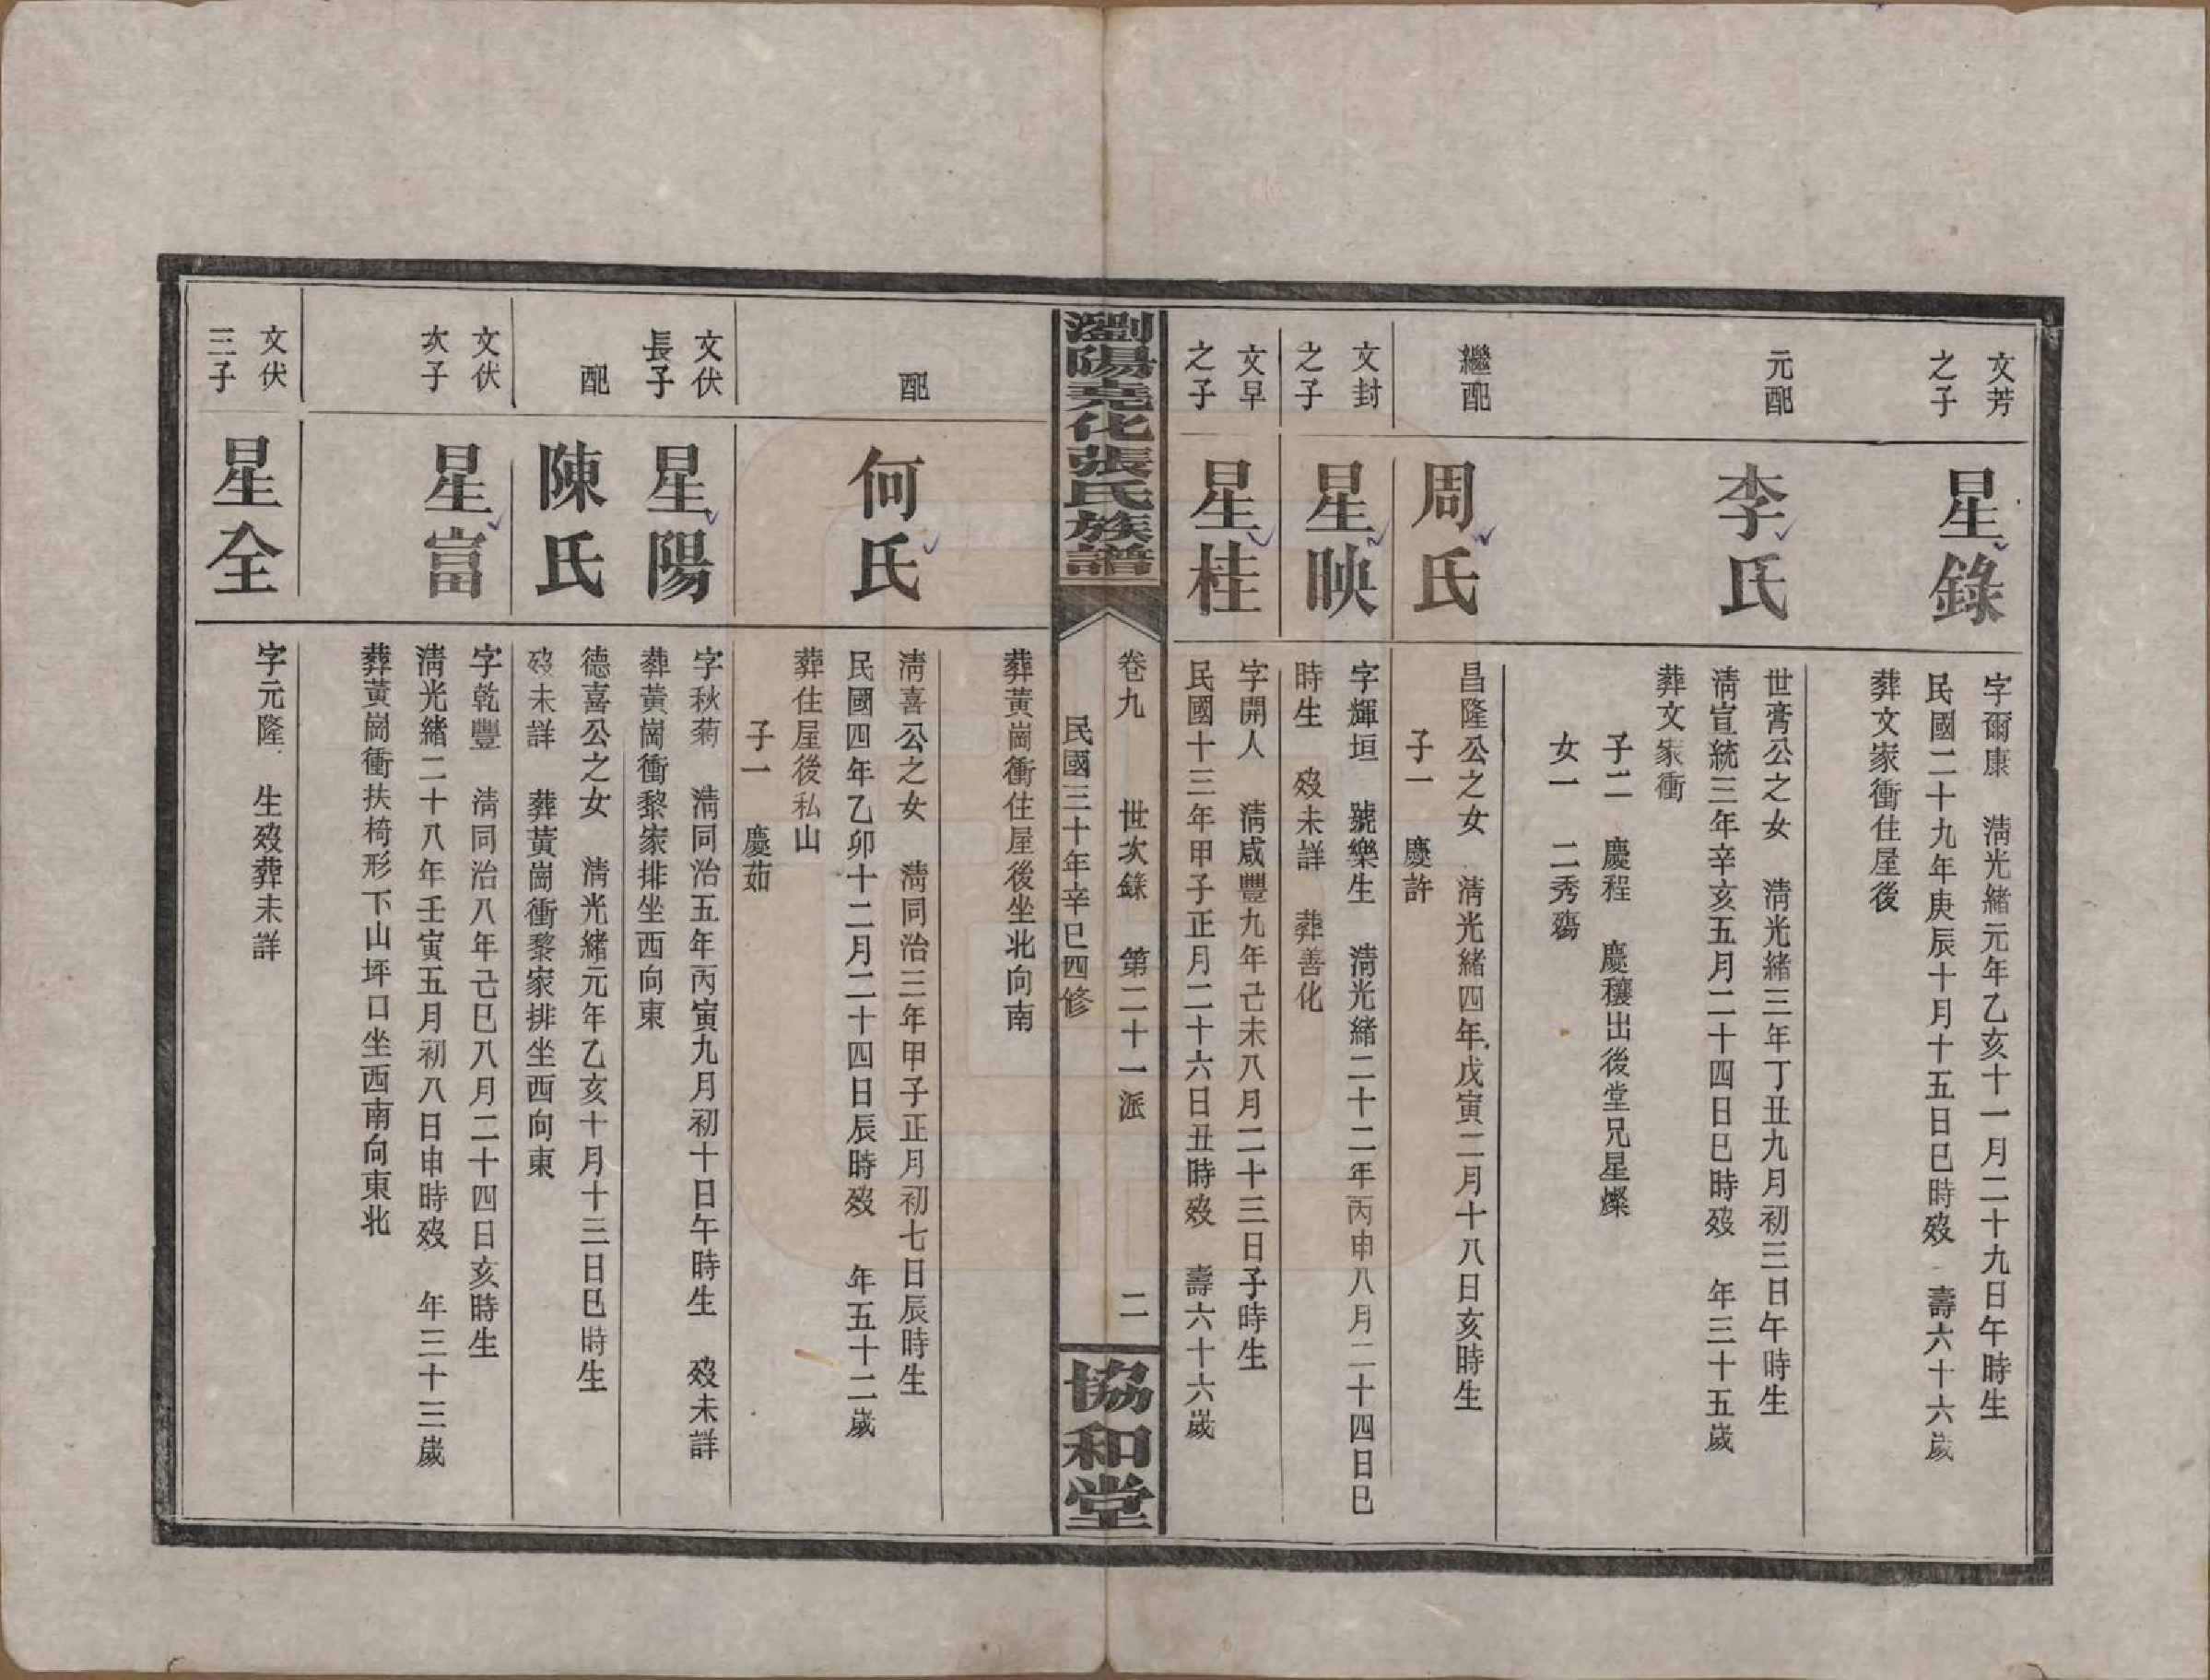 文芳
之子
星錄
字爾康　清光緒元年乙亥十一月二十九日午時生
民國二十九年庚辰十月十五日巳時歿　壽六十六歲
葬文家衝住屋後
元配
李氏
世膏公之女　清光緒三年丁丑九月初三日午時生
清宣統三年辛亥五月二十四日巳時歿　年三十五歲
葬文家衝
子二　慶程　慶穰出後堂兄星燦
女一　二秀殤
繼配
周氏
昌隆公之女　清光緒四年戊寅二月十八日亥時生
子一　慶許
文封
之子
星映
字輝垣　號樂生　清光緒二十二年丙申八月二十四日巳
時生　歿未詳　葬善化
文早
之子
星桂
字開人　清咸豐九年己未八月二十三日子時生
民國十三年甲子正月二十六日丑時歿　壽六十六歲
瀏陽堯化張氏族譜
卷九　世次錄　第二十一派　二
民國三十年辛巳四修
協和堂
葬黃崗衝住屋後坐北向南
配
何氏
清喜公之女　清同治三年甲子正月初七日辰時生
民國四年乙卯十二月二十四日辰時歿　年五十二歲
葬住屋後私山
子一　慶茹
文伏
長子
星陽
字秋菊　清同治五年丙寅九月初十日午時生　歿未詳
葬黃崗衝黎家排坐西向東
配
陳氏
德喜公之女　清光緒元年乙亥十月十三日巳時生
歿未詳　葬黃崗衝黎家排坐西向東
文伏
次子
星富
字乾豐　清同治八年己巳八月二十四日亥時生
清光緒二十八年壬寅五月初八日申時歿　年三十三歲
葬黃崗衝扶椅形下山坪口坐西南向東北
文伏
三子
星全
字元隆　生歿葬未詳